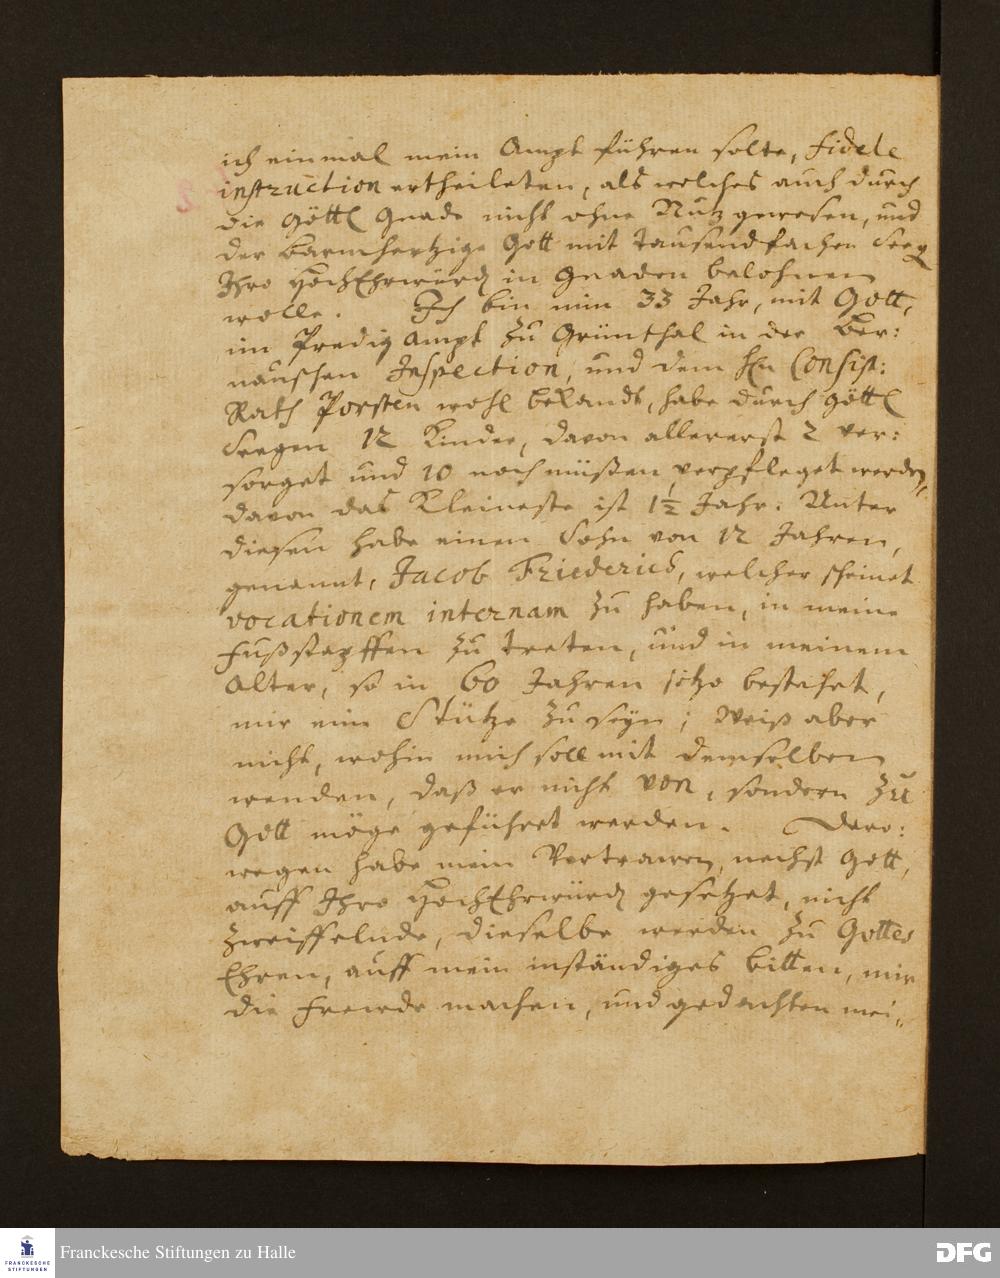 ich einmal mein Ampt führen solte, fidele
instruction ertheileten, als welches auch durch
die Göttl Gnade nicht ohne Nutz gewesen, und
der barmhertzige Gott mit tausendfachen Seeg
Ihro HochEhrwürd in Gnaden belohnen
wolle. Ich bin nun 33 Jahr, mit Gott,
im Predig Ampt zu Grünthal in der Ber:
nauschen Inspection, und dem Hn Consist:
Rath Porsten wohl bekandt, habe durch göttl
Seegen 12 Kinder, davon allererst 2 ver:
sorget und 10 noch müßen verpfleget werden,
davon das Kleineste ist 1½ Jahr: Unter
diesen habe einen Sohn von 12 Jahren,
genannt, Jacob Friederich, welcher scheinet
vocationem internam zu haben, in meine
Fußstapffen zu treten, und in meinem
Alter, so in 60 Jahren jetzo bestehet,
mir eine Stütze zu seyn; Weiß aber
nicht, wohin mich soll mit demselben
wenden, daß er nicht von, sondern zu
Gott möge geführet werden. Dero:
wegen habe mein Vertrawen, nechst Gott,
auff Ihro HochEhrwürd gesetzet, nicht
zweiffelnde, dieselbe werden zu Gottes
Ehren, auff mein inständiges bitten, mir
die Frewde machen, und gedachten mei,,
Franckesche Stiftungen zu Halle
DFG
FRANCKESCHE
STIFTUNGEN